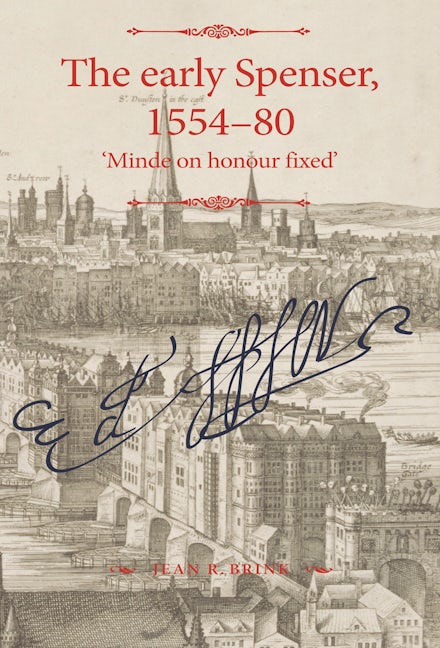 The early Spenser,
1554–80
‘Minde on honour fixed’
St. Dunston in the east
JEAN R. BRINK